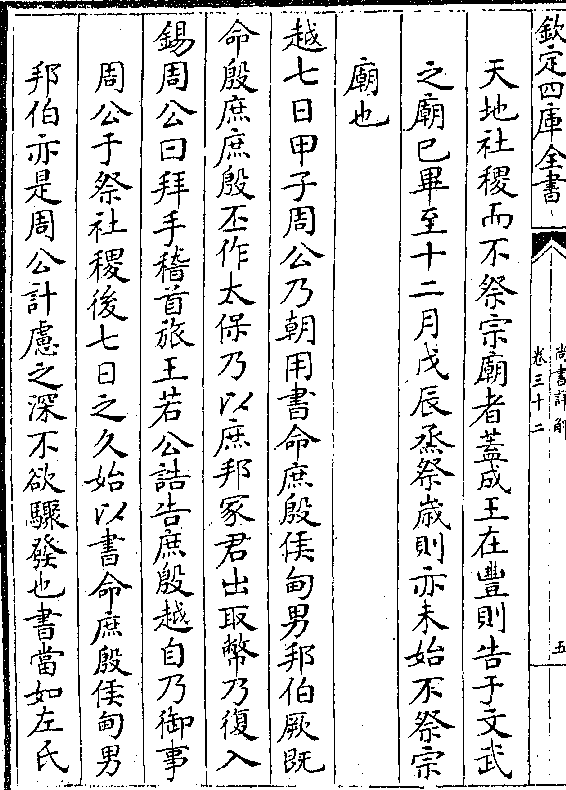 欽定四庫全書
尚書詳解
卷三十二
五
天地社稷而不祭宗廟者蓋成王在豐則告于文武
之廟已畢至十二月戊辰烝祭歲則亦未始不祭宗
廟也
越七日甲子周公乃朝用書命庶殷侯甸男邦伯厥既
命殷庶庶殷丕作太保乃以庶邦冢君出取幣乃復入
錫周公曰拜手稽首旅王若公誥告庶殷越自乃御事
周公于祭社稷後七日之久始以書命庶殷侯甸男
邦伯亦是周公計慮之深不欲驟發也書當如左氏